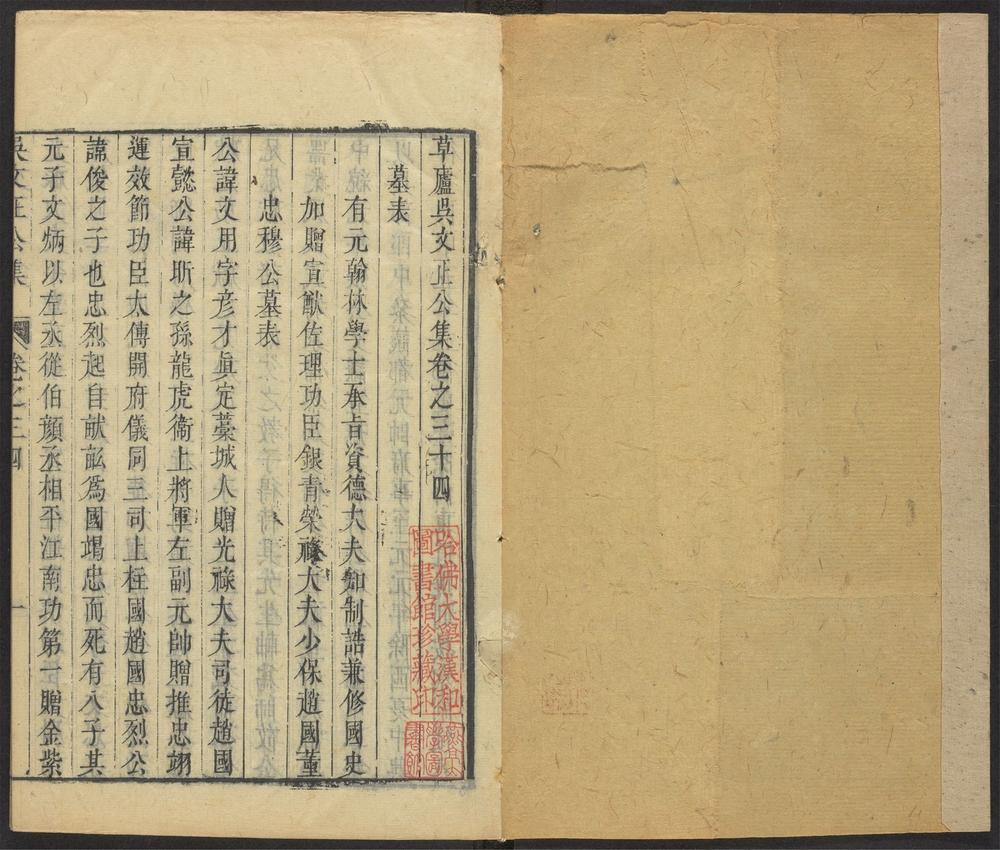 草廬吳文正公集卷之三十四
墓表
有元翰林學士承旨資德大夫知制誥兼修國史
加贈宣猷佐理功臣銀青榮祿大夫少保趙國董
忠穆公墓表
公諱文用字彦才眞定藁城人贈光祿大夫司徒趙國
宣懿公諱昕之孫龍虎衞上將軍左副元帥贈推忠翊
運效節功臣太傅開府儀同三司上柱國趙國忠烈公
諱俊之子也忠烈起自献畝爲國竭忠而死有八子其
元子文炳以左丞從伯顔丞相平江南功第一贈金紫
吳文正公集
卷之三四
一
哈佛大學漢和
圖書館珍藏印